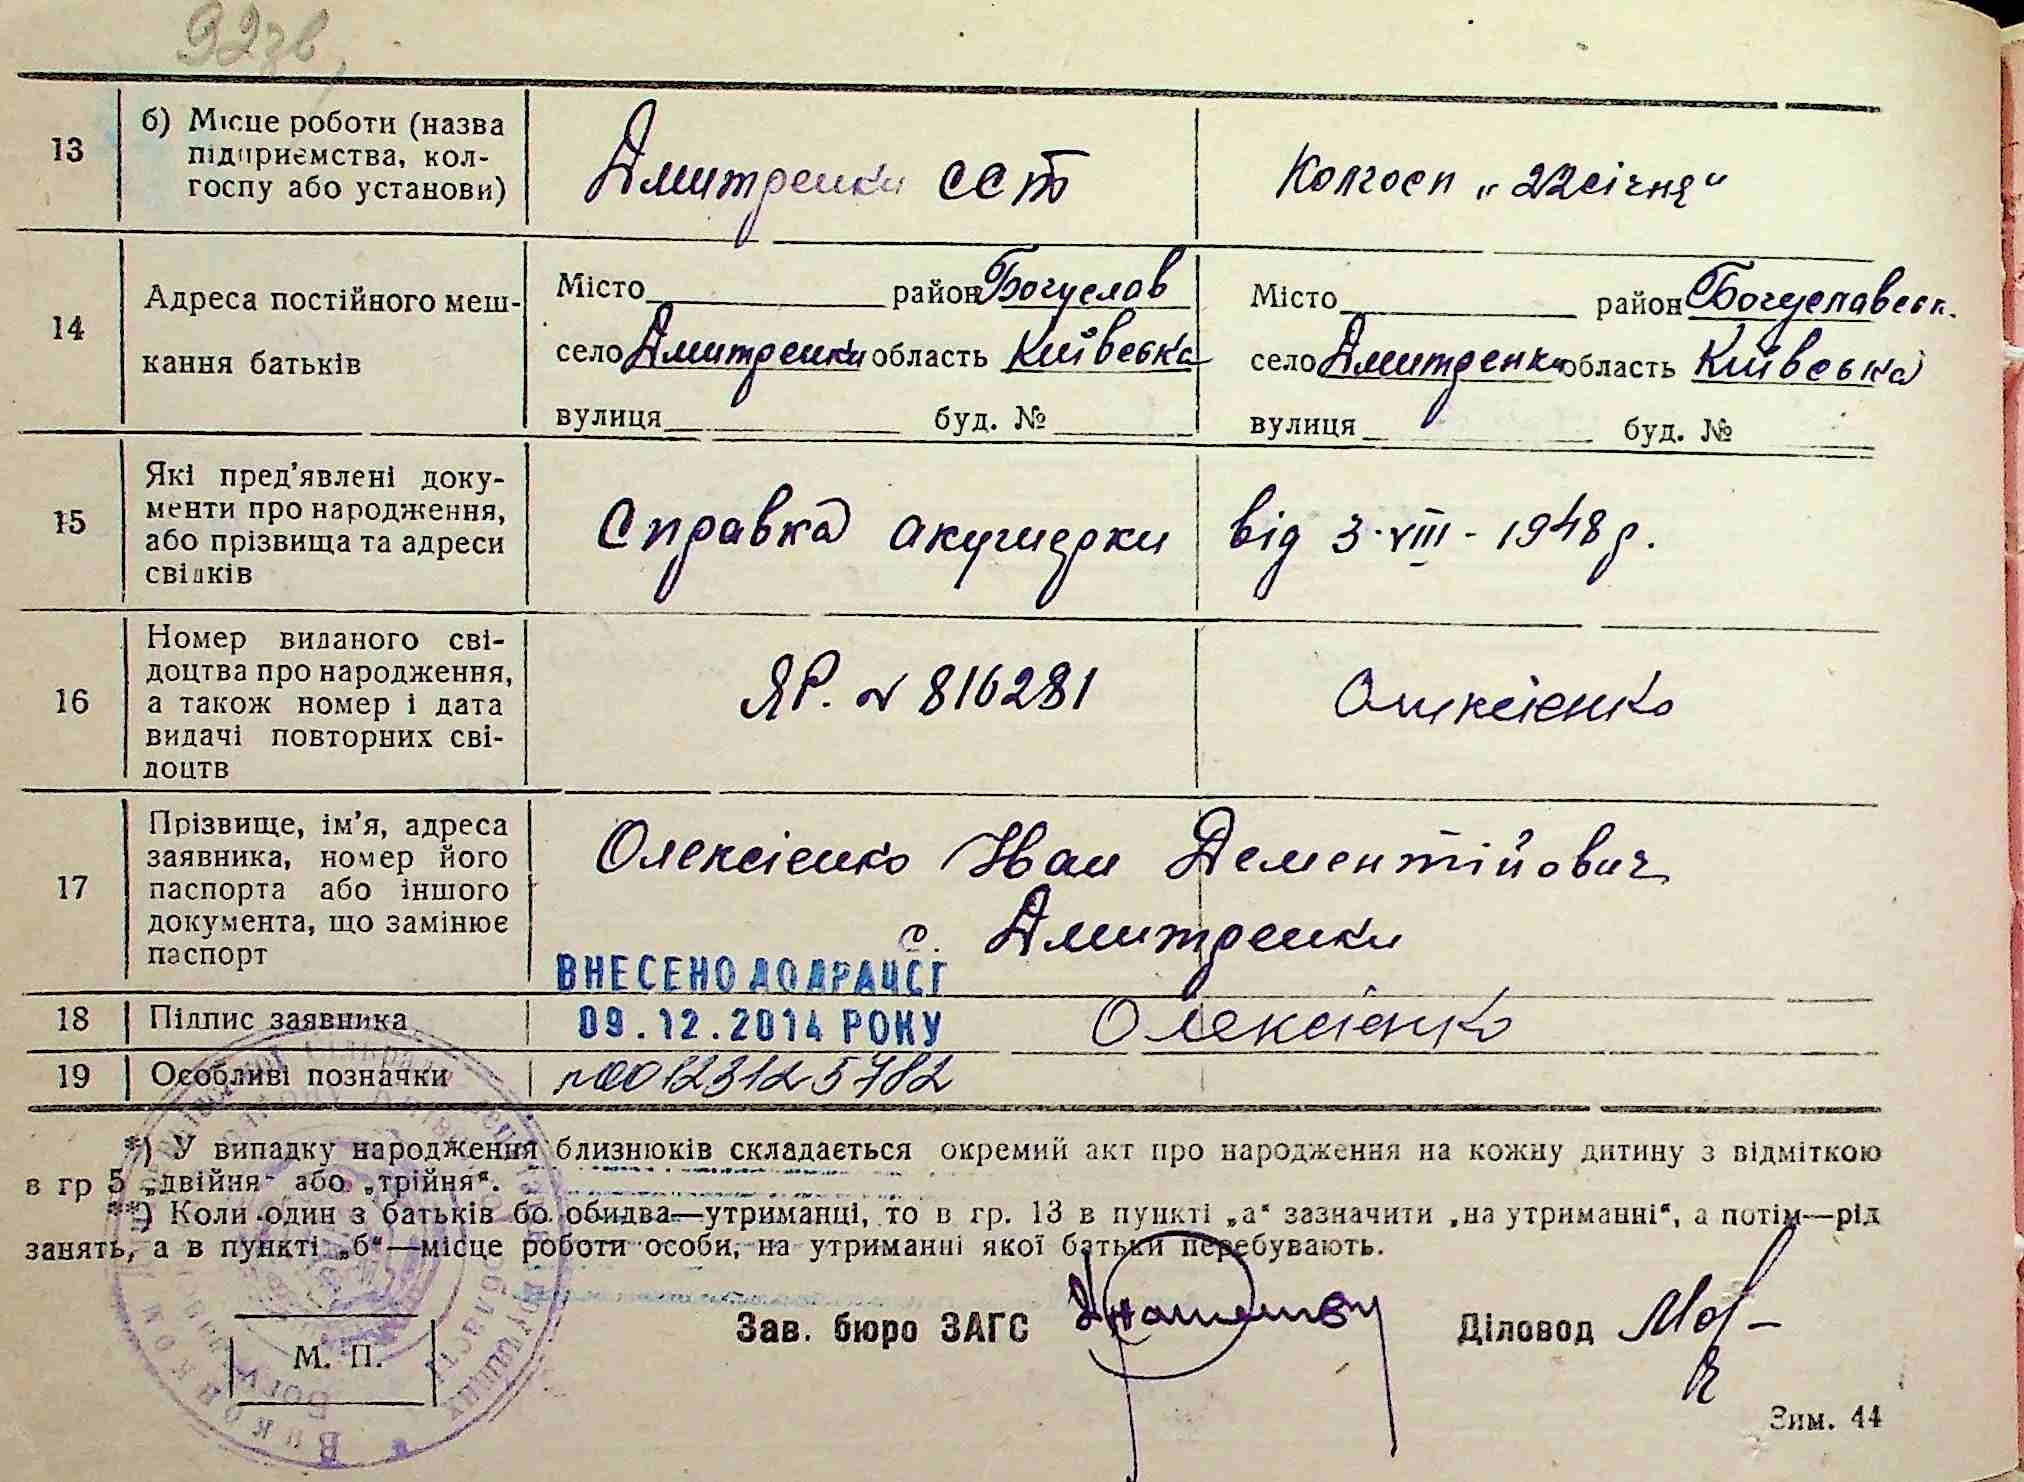 92зв,
13
б) Місце роботи (назва
підприємства, кол-
госпу або установи)
Дмитренки ССТ
Колгосп „22 січня"
14
Адреса постійного меш-
кання батьків
Місто район Богуслав
село Дмитренки область Київська
вулиця буд. №
Місто район Богуславськ.
село Дмитренки область Київська
вулиця буд. №
15
Які пред'явлені доку-
менти про народження,
або прізвища та адреси
свідків
Справка акушерки від 3-VIII-1948 р.
16
Номер виданого сві-
доцтва про народження,
а також номер і дата
видачі повторних сві-
доцтв
ЯР. № 816281
Олексієнко
17
Прізвище, ім'я, адреса
заявника, номер його
паспорта або іншого
документа, що замінює
паспорт
Олексієнко Іван Дементійович
с. Дмитренки
ВНЕСЕНО ДО ДРАЦСГ
18
Підпис заявника
09.12.2014 РОКУ
Олексієнко
19
Особливі позначки
n00123125782
*) У випадку народження близнюків складається окремий акт про народження на кожну дитину з відміткою
в гр 5 „двійня" або „трійня".
**) Коли один з батьків бо обидва—утриманці, то в гр. 13 в пункті „а" зазначити „на утриманні", а потім—рід
занять, а в пункті „б"—місце роботи особи, на утриманні якої батьки перебувають.
Зав. бюро ЗАГС
Діловод
М. П.
Зим. 44